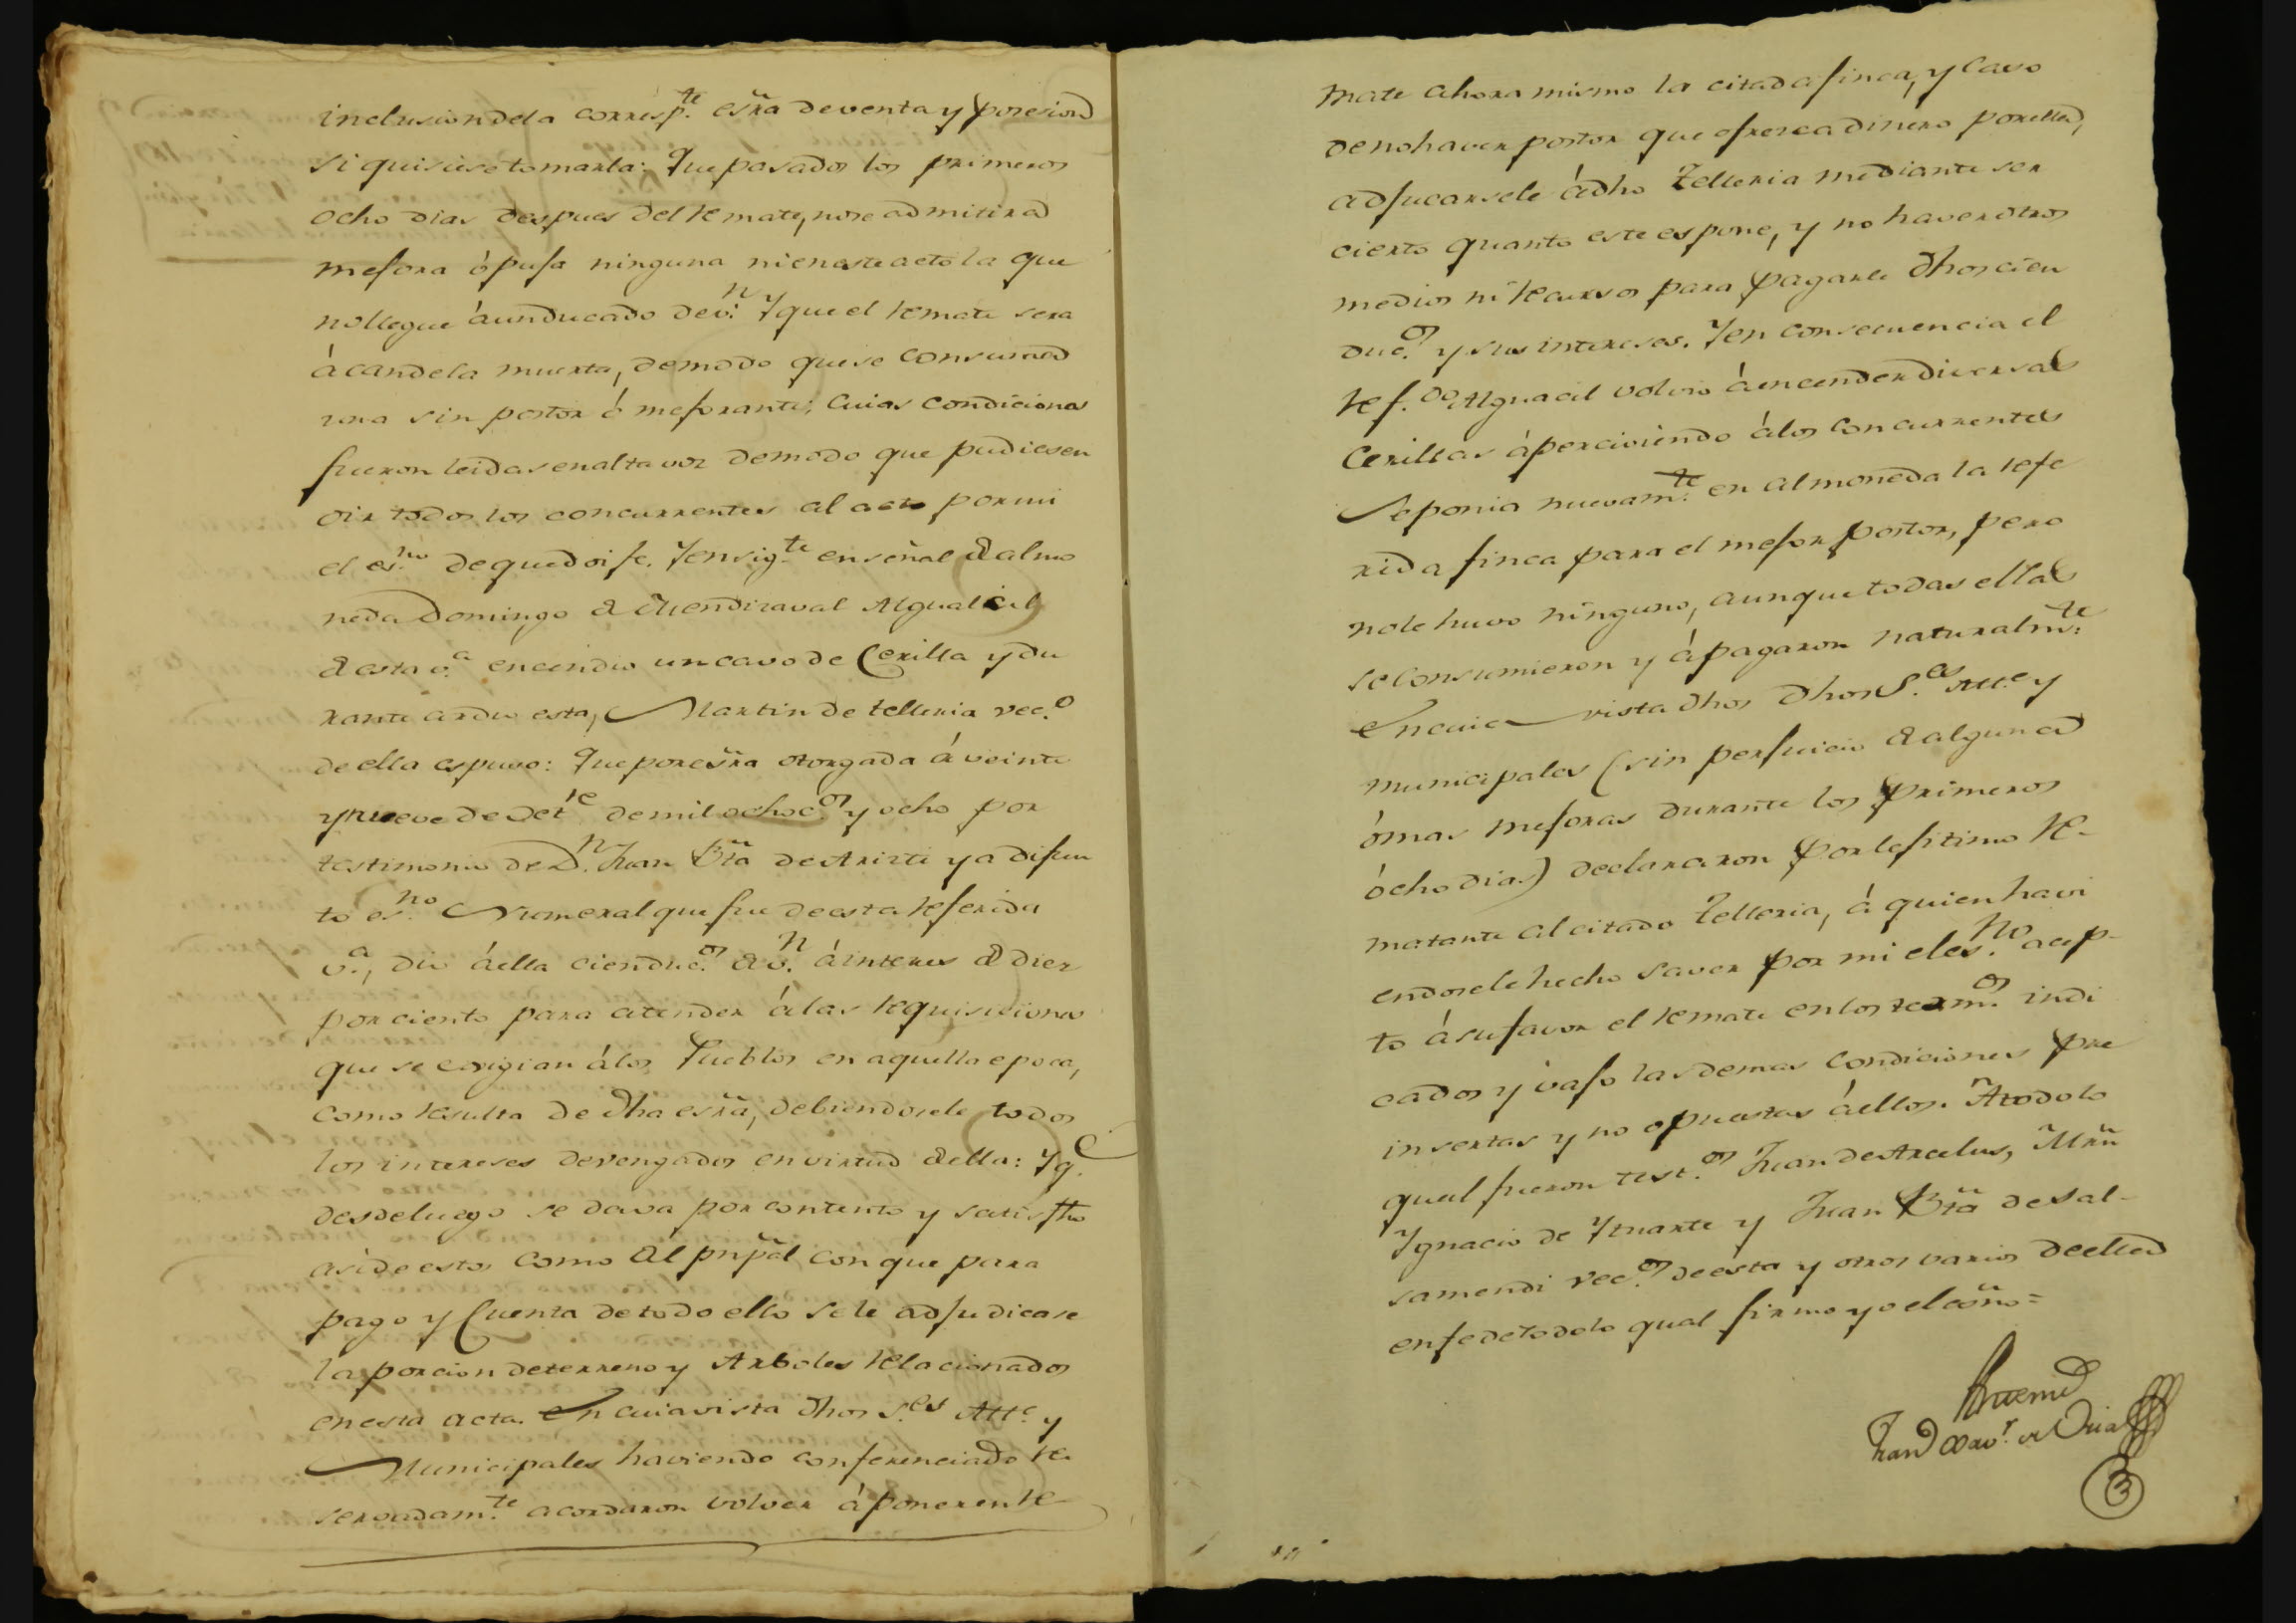 inclusion de la corresp.te esr̃a de venta y posesion
si quisiese tomarla: Que pasados los primeros
ocho dias despues del Remate, no se admitira
mejora ó puja ninguna ni en este acto la que
no llegue á un ducado de v.n Y que el Remate sera
á candela muerta, de modo que se consuma
una sin postor ó mejorante; Cuias condiciones
fueron leidas en alta voz de modo que pudiesen
oir todos los concurrentes al acto por mi
el es.no de que doi fe. Y en sig.te en señal de almo
neda Domingo de Mendizaval Alguacil
de esta v.a encendio un cavo de Cerilla y du
rante ardio esta, Martin de Telleria vec.o
de ella espuso: Que por esr̃a otorgada á veinte
y nueve de Set.re de mil ochoc.os y ocho por
testimonio de D.n Juan Bta de Arizti ya difun
to es.no Numeral que fue de esta Referida
v.a, dio á ella cien duc.os de v.n á interes de diez
por ciento para atender á las Requisiciones
que se exigian á los Pueblos en aquella epoca,
como Resulta de dha esr̃a, debiendosele todos
los intereses devengados en virtud de ella: Y q.e
desde luego se dava por contento y satisfho
asi de estos como del prnpãl con que para
pago y Cuenta de todo ello se le adjudicase
la porcion de terreno y Arboles Relacionados
en esta acta. En cuia vista dhos S.es Alc.e y
Municipales haviendo conferenciado Re
servadam.te acordaron volver á poner en Re
mate ahora mismo la citada finca, y caso
de no haver postor que ofresca dinero por ella,
adjucarsele á dho Telleria mediante ser
cierto quanto este espone, y no haver otros
medios ni Recursos para pagarle dhos cien
duc.os y sus intereses. Y en consecuencia el
Ref.do Alguacil volvio á encender diversas
Cerillas aperciviendo á los concurrentes
se ponia nuevam.te en almoneda la refe
rida finca para el mejor postor, pero
no le huvo ninguno, aunque todas ellas
se consumieron y apagaron naturalm.te
En cuia vista dhos dhos S.es Alc.e y
municipales (sin perjuicio de alguna
ó mas mejoras durante los primeros
ócho dias) declararon por lejitimo Re-
matante al citado Telleria, á quien havi
endosele hecho saver por mi el es.no acep-
to á su favor el Remate en los term.os indi
cados y vajo las demas condiciones pre
insertas y no opuestas á ellos. A todo lo
qual fueron test.os Juan de Arcelus, Mrñ
Ygnacio de Yruarte y Juan Bta de Sal-
samendi vec.os de esta y otros varios de ella
en fe de todo lo qual firmo yo el esño =
Ante mi
Fran.co Xav.r de Oria